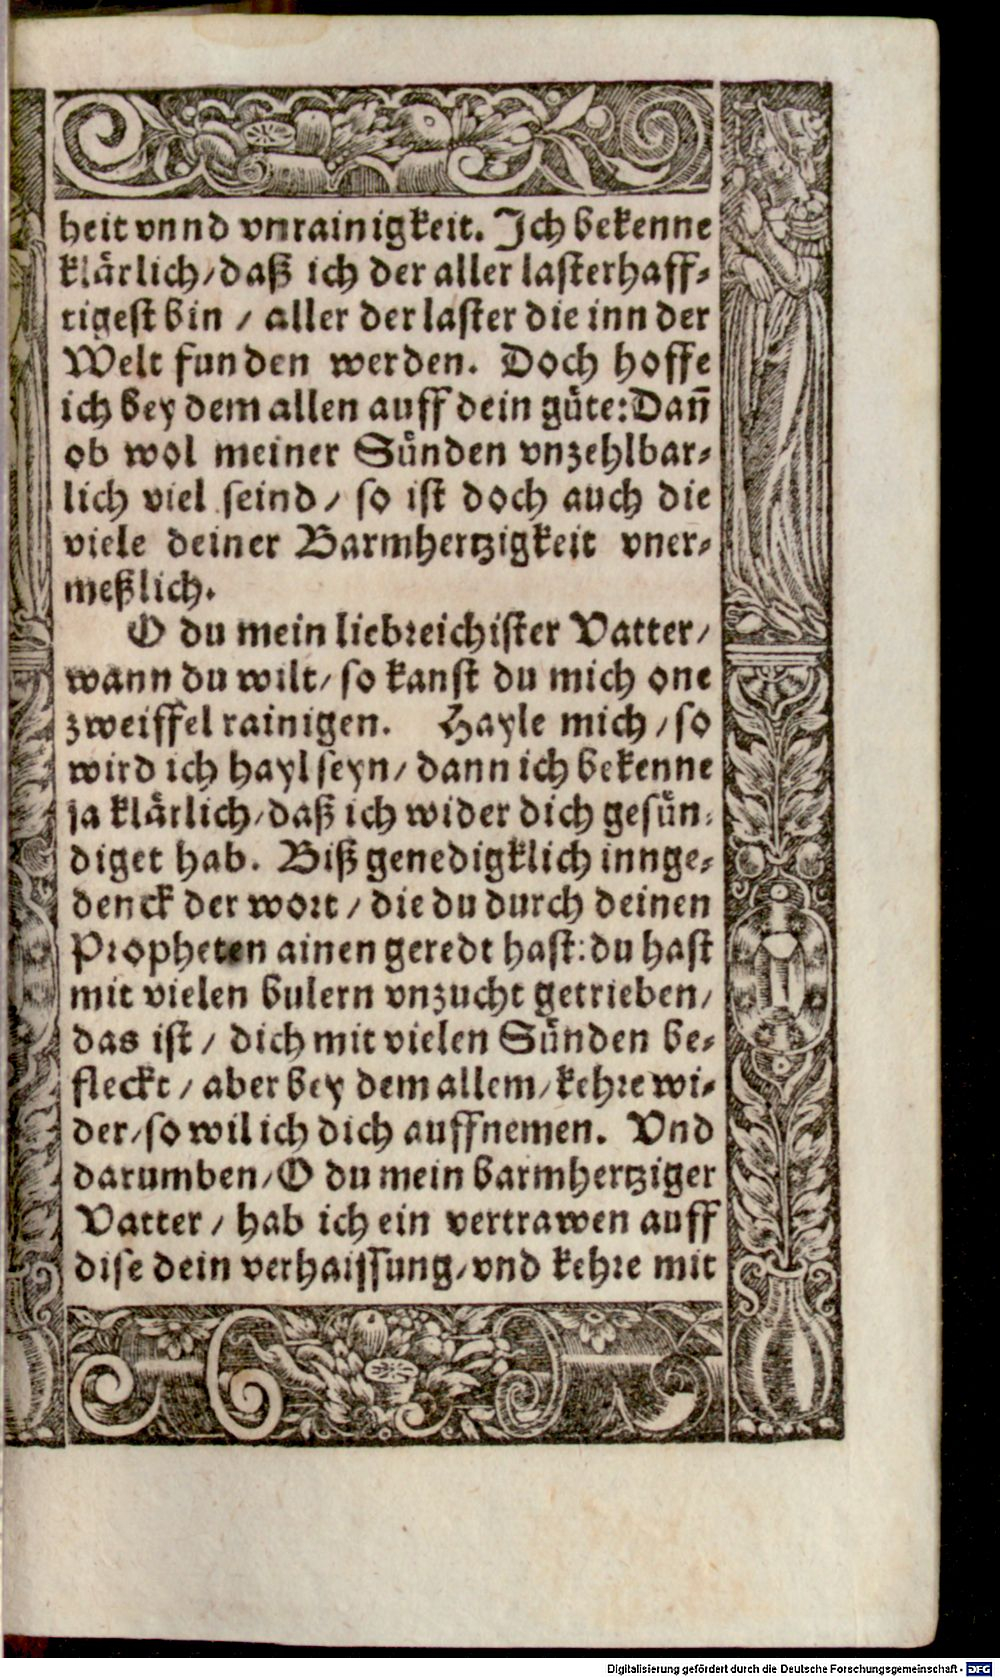 heit vnnd vnrainigkeit. Ich bekenne
klärlich/daß ich der aller lasterhaff-
tigest bin / aller der laster die inn der
Welt funden werden. Doch hoffe
ich bey dem allen auff dein güte: Dañ
ob wol meiner Sünden vnzehlbar-
lich viel seind / so ist doch auch die
viele deiner Barmhertzigkeit vner-
meßlich.
O du mein liebreichister Vatter/
wann du wilt/ so kanst du mich one
zweiffel rainigen. Hayle mich / so
wird ich hayl seyn/ dann ich bekenne
ja klärlich/daß ich wider dich gesün-
diget hab. Biß genedigklich innge-
denck der wort / die du durch deinen
Propheten ainen geredt hast: du hast
mit vielen bulern vnzucht getrieben/
das ist / dich mit vielen Sünden be-
fleckt / aber bey dem allem/ kehre wi-
der/so wil ich dich auffnemen. Vnd
darumben/ O du mein barmhertziger
Vatter / hab ich ein vertrawen auff
dise dein verhaissung/vnd kehre mit
Digitalisierung gefördert durch die Deutsche Forschungsgemeinschaft - DFG